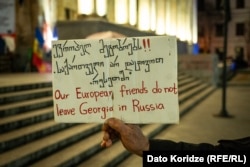 ევროპელო მეგობრებო!!
საქართველო არ დატოვოთ
რუსეთში
Our European friends do not
leave Georgia in Russia
Dato Koridze (RFE/RL)